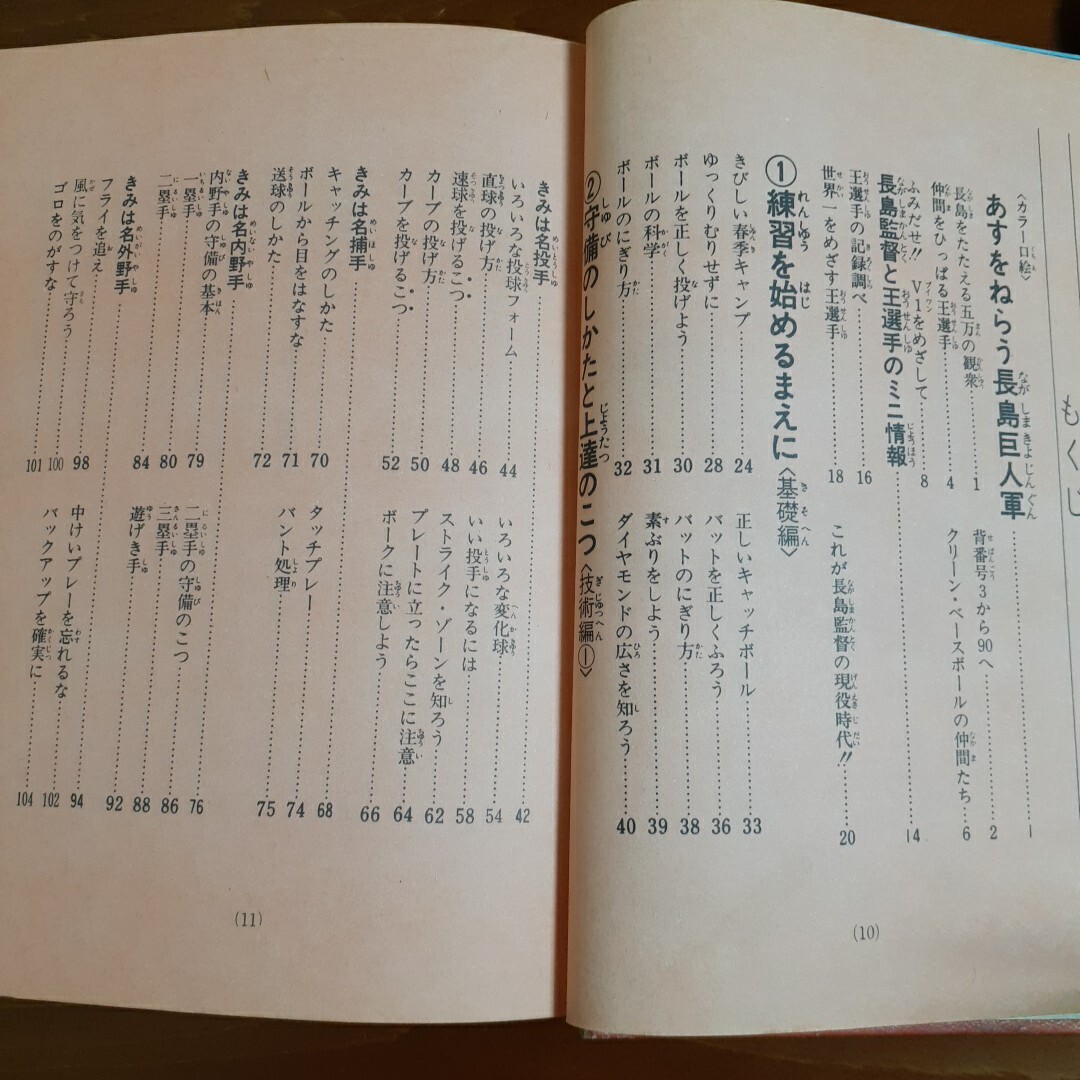 もくじ
〈カラー口絵〉
あすをねらう長島巨人軍……1
長島をたたえる五万の観衆……1
背番号3から90へ……2
仲間をひっぱる王選手……4
クリーン・ベースボールの仲間たち……6
ふみだせ!! V1をめざして……8
長島監督と王選手のミニ情報……14
王選手の記録調べ……16
世界一をめざす王選手……18
これが長島監督の現役時代!!……20
①練習を始めるまえに〈基礎編〉
きびしい春季キャンプ……24
正しいキャッチボール……33
ゆっくりむりせずに……28
バットを正しくふろう……36
ボールを正しく投げよう……30
バットのにぎり方……38
ボールの科学……31
素ぶりをしよう……39
ボールのにぎり方……32
ダイヤモンドの広さを知ろう……40
②守備のしかたと上達のこつ〈技術編Ⅰ〉
(10)
きみは名投手……42
いろいろな投球フォーム……44
いろいろな変化球……54
直球の投げ方……46
いい投手になるには……58
速球を投げるこつ……48
ストライク・ゾーンを知ろう……62
カーブの投げ方……50
プレートに立ったらここに注意……64
カーブを投げるこつ……52
ボークに注意しよう……66
きみは名捕手……68
キャッチングのしかた……70
タッチプレー……74
ボールから目をはなすな……71
バント処理……75
送球のしかた……72
きみは名内野手……76
内野手の守備の基本……79
二塁手の守備のこつ……86
一塁手……80
三塁手……88
二塁手……84
遊げき手……92
きみは名外野手……94
フライを追え……98
中けいプレーを忘れるな……102
風に気をつけて守ろう……100
バックアップを確実に……104
ゴロをのがすな……101
(11)